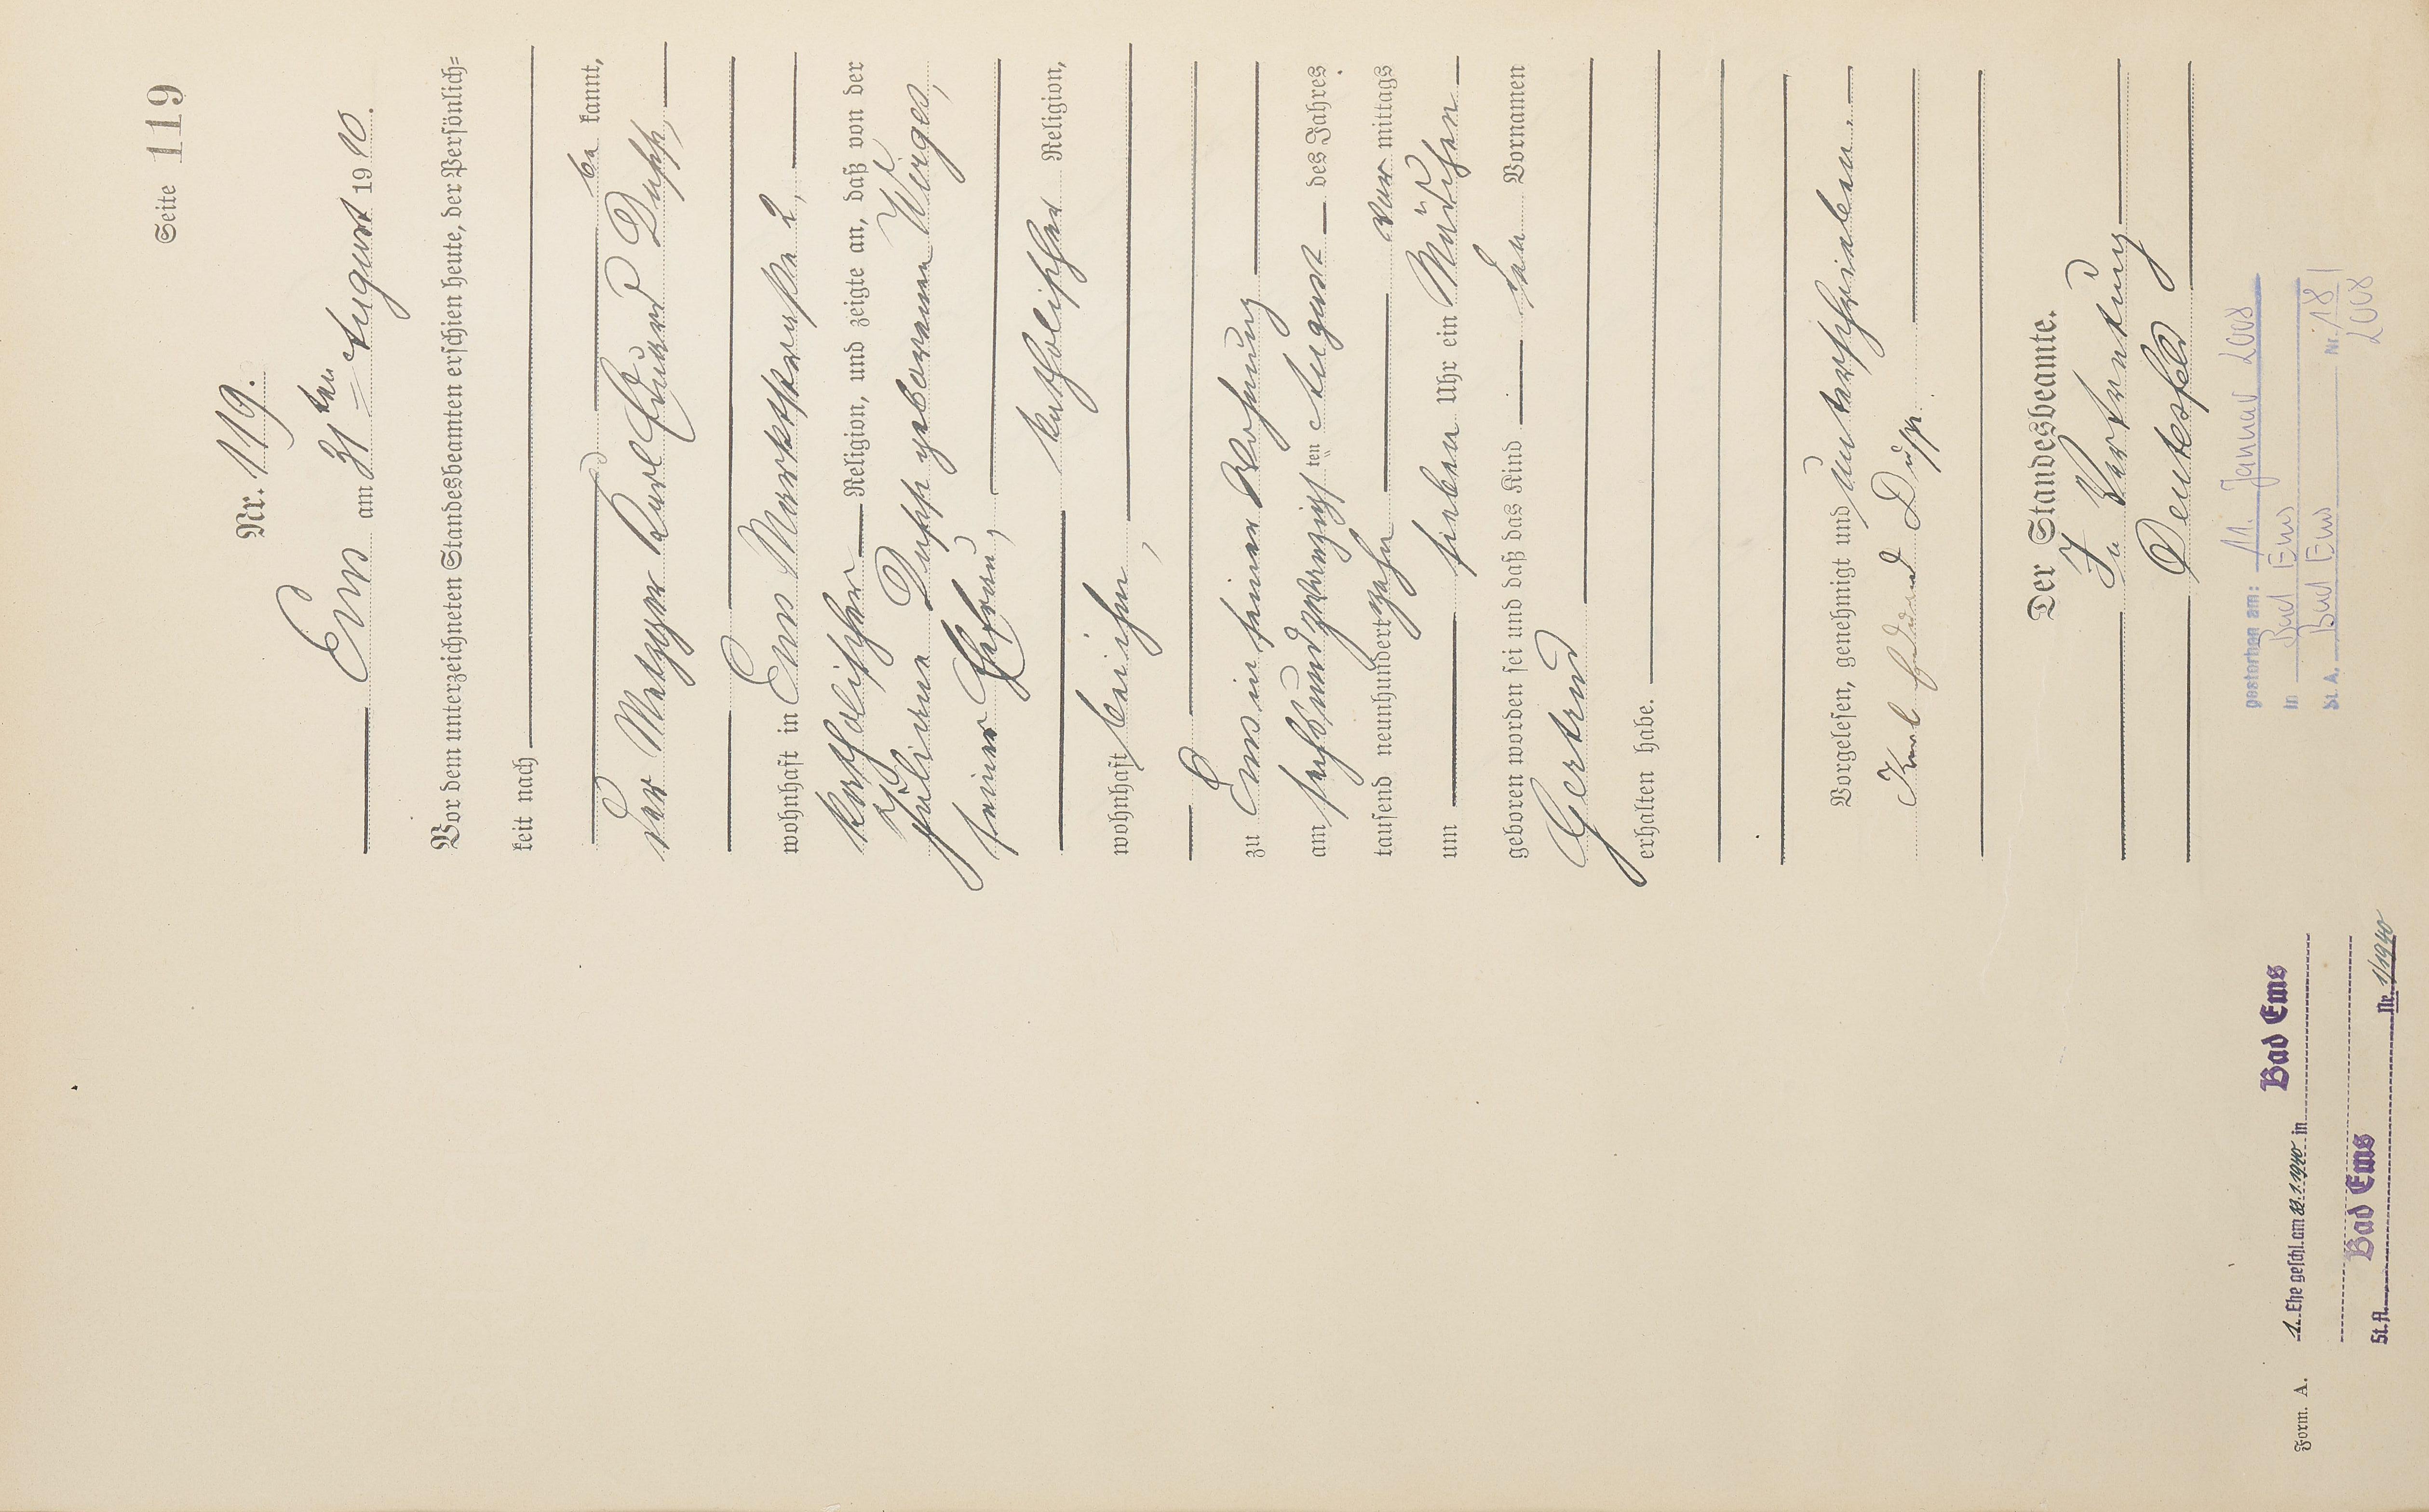 Seite 119
Nr. 119.
Ems am 31ten August 1910.
Vor dem unterzeichneten Standesbeamten erschien heute, der Persönlich=
keit nach
be kannt,
der Metzger Karl Eduard Dupp,
wohnhaft in Ems Marktstraße 2,
katholischer Religion, und zeigte an, daß von der
Juliana Dupp geborenen Wirges,
seiner Ehefrau,
katholischer Religion,
wohnhaft bei ihm,
zu Ems in seiner Wohnung
am sechsundzwanzigsten August des Jahres
tausend neunhundertzehn vor mittags
um sieben Uhr ein Mädchen
geboren worden sei und daß das Kind den Vornamen
Gertrud
erhalten habe.
Vorgelesen, genehmigt und unterschrieben.
Karl Eduard Dupp.
Der Standesbeamte.
In Vertretung
gestorben am: 11. Januar 2008
in Bad Ems
St. A. Bad Ems Nr. 18/
2008
Form. A.
1. Ehe geschl. am in Bad Ems
St. A. Bad Ems Nr. 1/1940